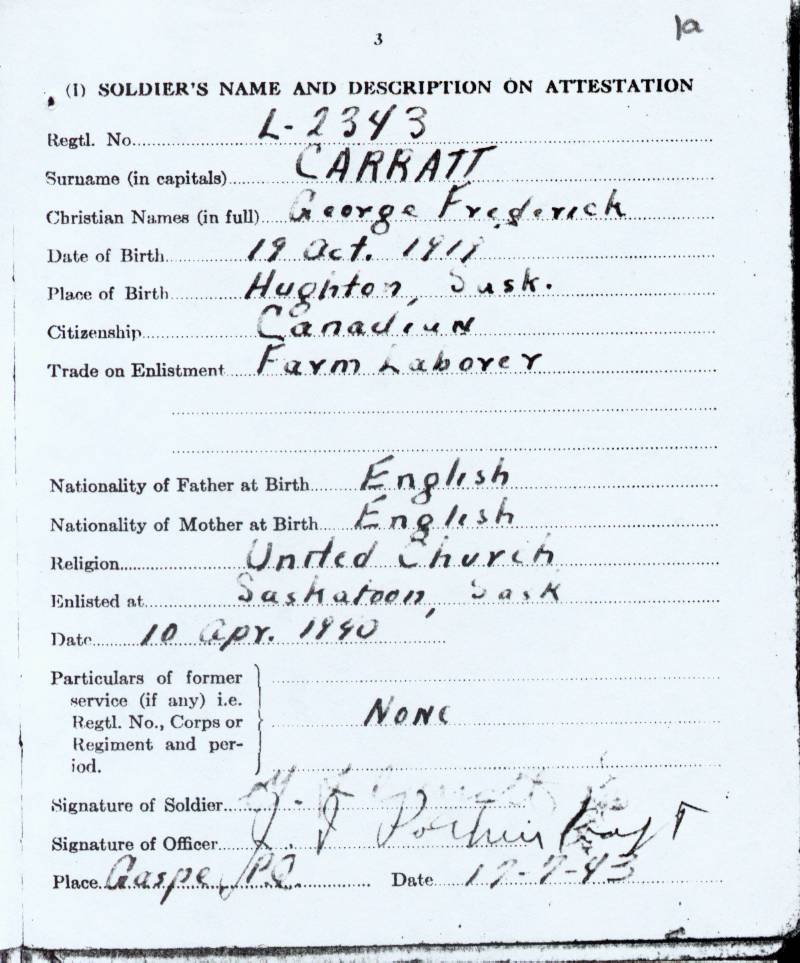 1a
3
(I) SOLDIER'S NAME AND DESCRIPTION ON ATTESTATION
Regtl. No. L-2343
Surname (in capitals) CARRATT
Christian Names (in full) George Frederick
Date of Birth 19 Oct. 1919
Place of Birth Hughton, Sask.
Citizenship Canadian
Trade on Enlistment Farm Laborer
Nationality of Father at Birth English
Nationality of Mother at Birth English
Religion United Church
Enlisted at Saskatoon, Sask
Date 10 Apr. 1940
Particulars of former
service (if any) i.e.
Regtl. No., Corps or None
Regiment and per-
iod.
Signature of Soldier
Signature of Officer
Place Gaspe, P.Q. Date 17-7-43